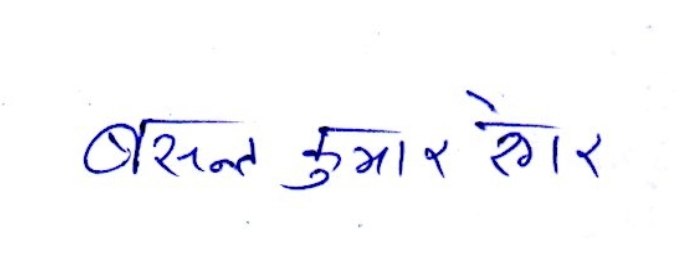 बसन्त कुमार रेगर